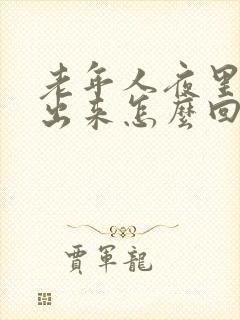 老年人夜里
出来怎麼回
賈軍龍